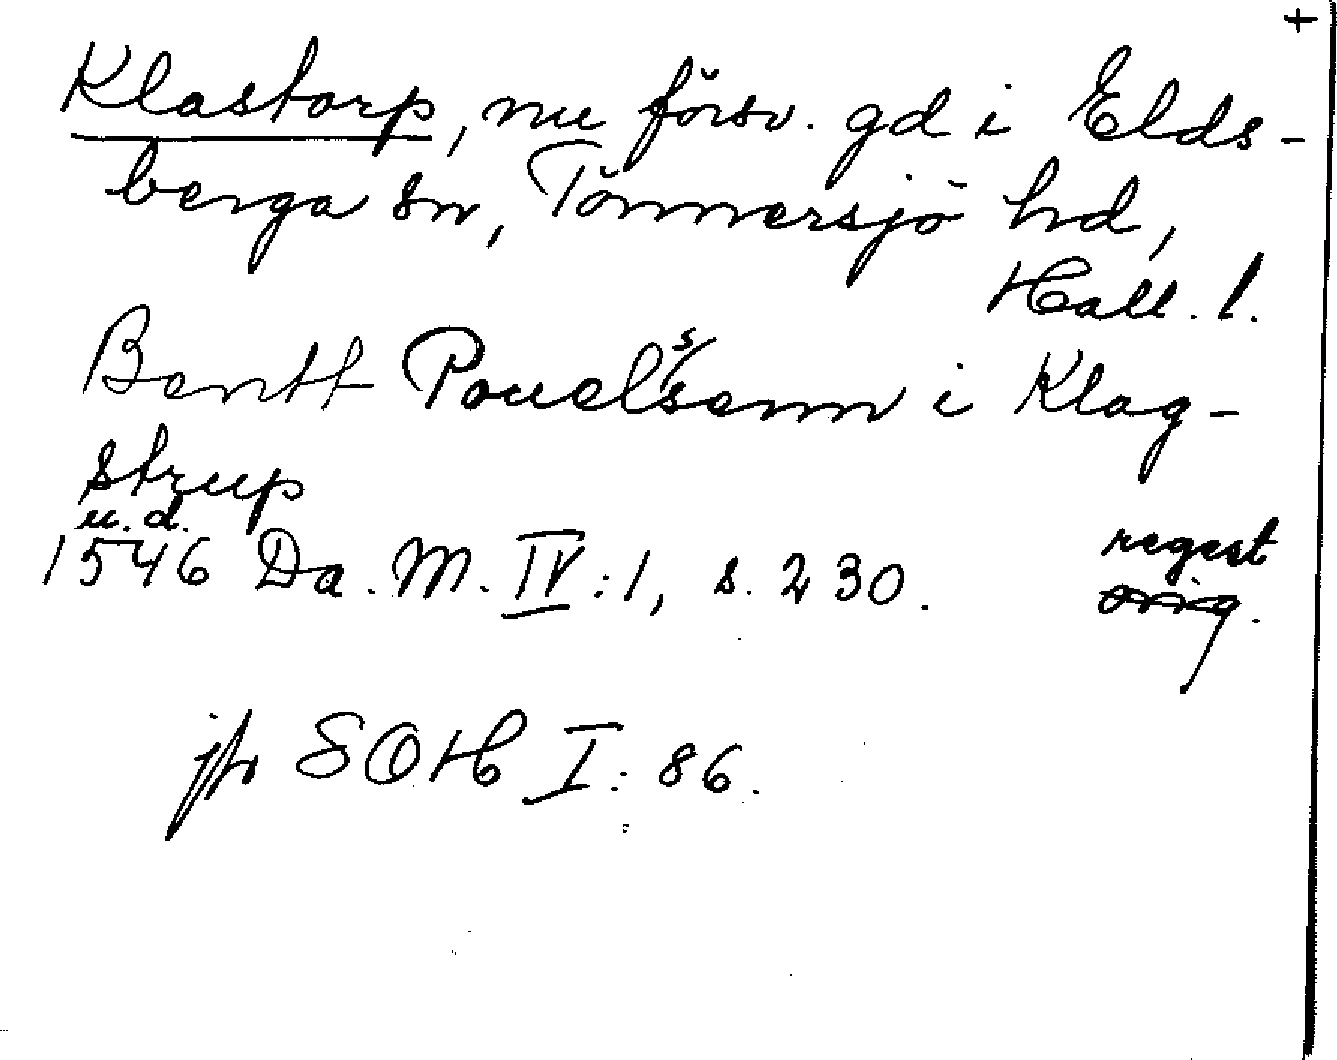 +
Klastorp, nu försv. gd i Elds-
berga sn, Tönnersjö hd,
Hall. l.
Bentt Pouelssenn i Klag-
strup
u. d.
1546 Da. M. IV:1, s. 230. regest
orig.
jfr SOH I: 86.